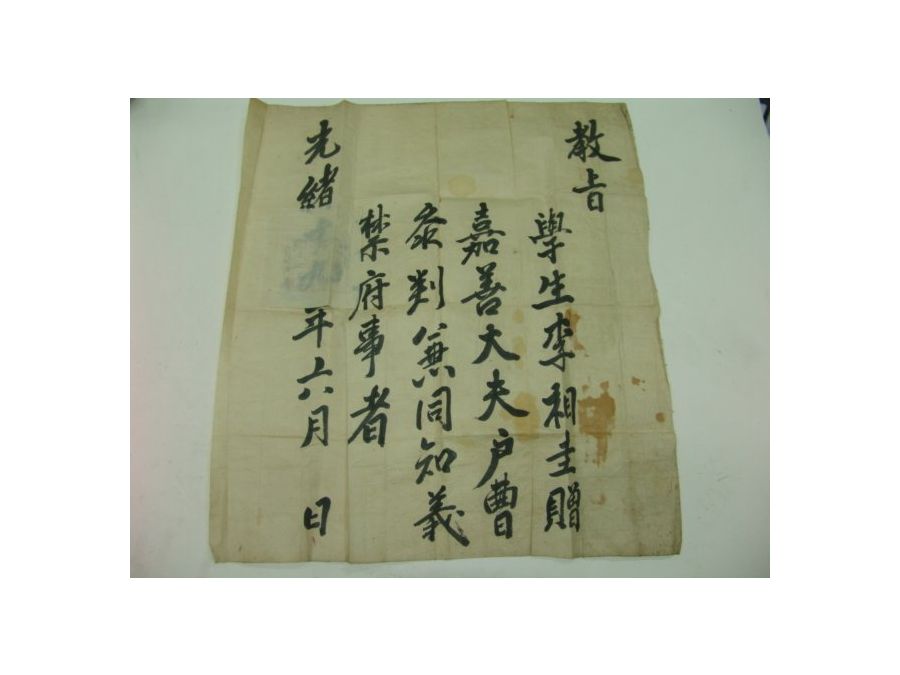 教旨
學生李相圭贈
嘉善大夫戶曹
叅判兼同知義
禁府事者
光緒十九年六月 日